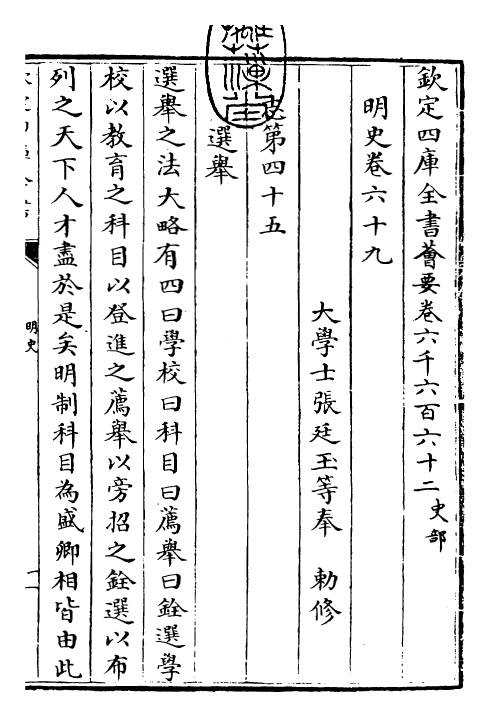 欽定四庫全書薈要卷六千六百六十二 史部
明史卷六十九
大學士張廷玉等奉 勅修
志第四十五
選舉
選舉之法大略有四曰學校曰科目曰薦舉曰銓選學
校以教育之科目以登進之薦舉以旁招之銓選以布
列之天下人才盡於是矣明制科目為盛卿相皆由此
明史
一